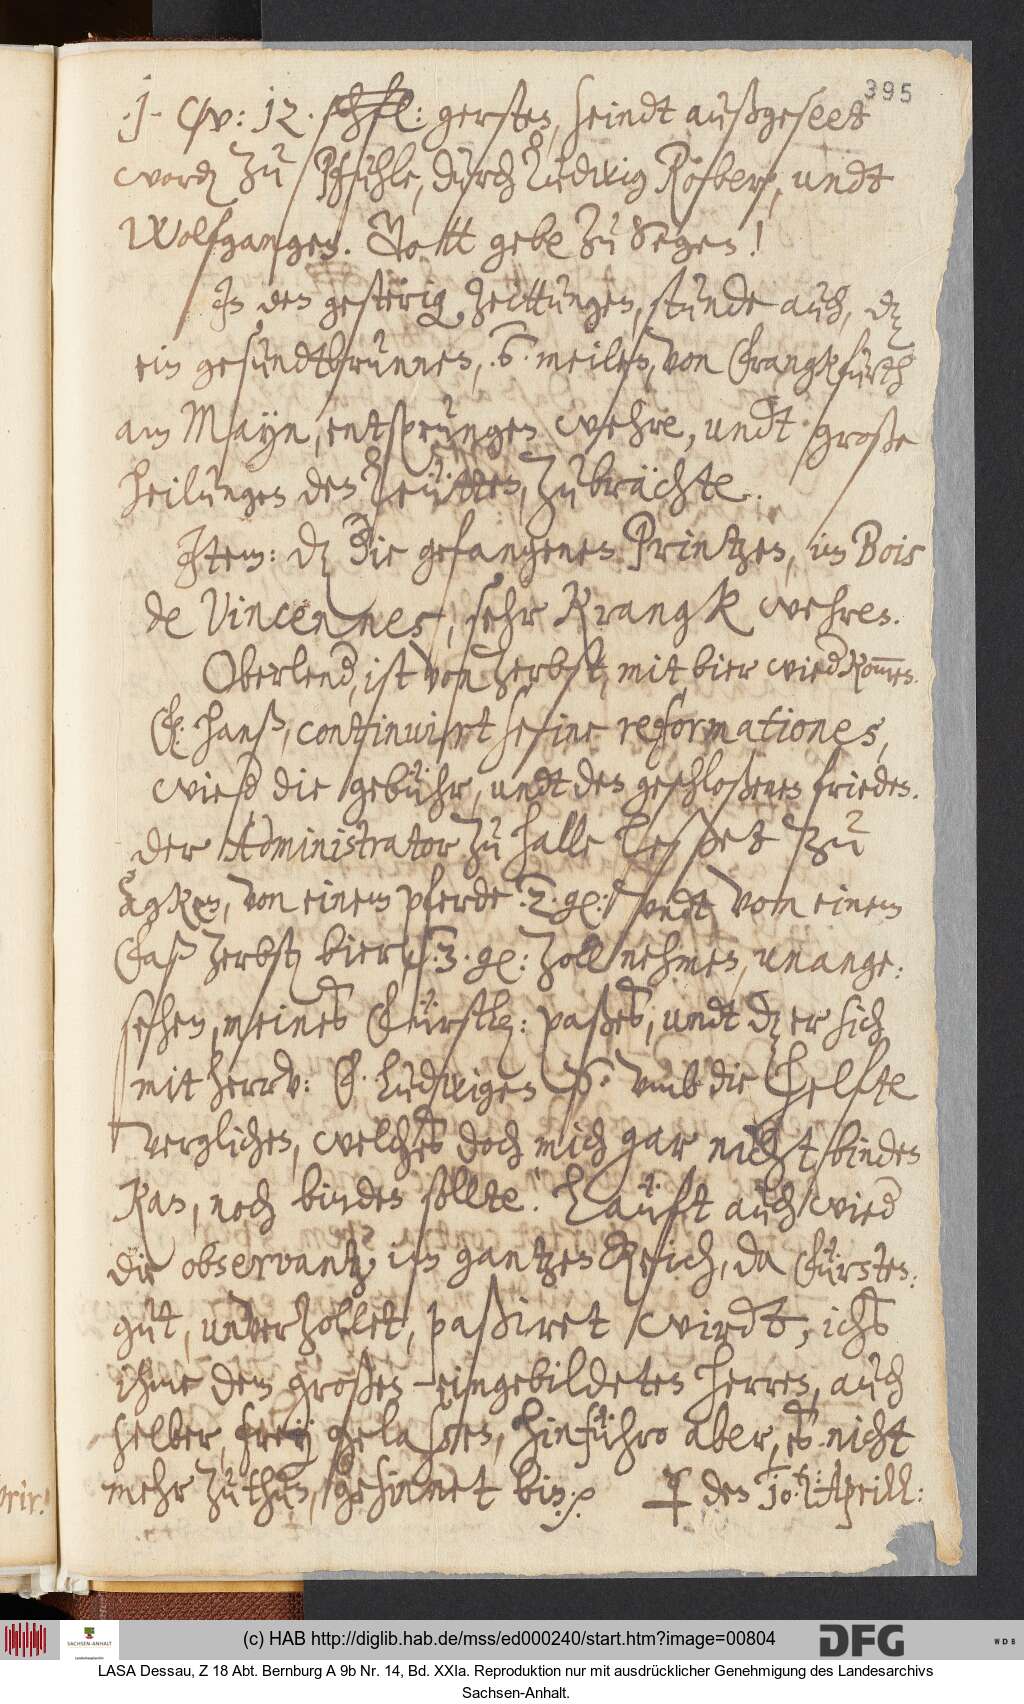 395
.j. Wsp: 12. schfl: gersten, seindt außgeseet
word(en) zu Pfuhle, durch Ludwig Rößbern, undt
Wolfgangen. Gott gebe zu Segen!
In den gesterig(en) zeittungen, stunde auch, dz
ein gesundtbrunnen, .6. meilen, von Franckfurth
am Mayn, entsprungen wehre, undt große
heilungen den Leütten, zubrächte.
Item: dz die gefangenen Printzen, im Bois
de Vincennes, sehr Krangk wehren.
Oberlend(er), ist von Zerbst, mit bier wied(er) kommen.
F: Hanß, continuirt seine reformationes,
wied(er) die gebühr, undt den geschloßenen frieden.
der Administrator zu Halle leßet zu
Agken, von einem pferde .2. gl: undt von einem
Faß Zerbst(er) bier .3. gl: Zoll nehmen, unange:
sehen, meines Fürstl: paßes, undt dz er sich
mit herrv: F. Ludwigen umb die Helfte
verglichen, welches doch mich gar nicht binden
Kan, noch binden sollte. Läuft auch wied(er)
die observantz im gantzen Reich, da Fürsten:
gut, unverzollet, paßiret wirdt, ichs
ihme dem großen eingebildeten Herren, auch
selber, frey gelaßen, hinführo aber, es nicht
mehr zu thun, gesinnet bin.
den 10. Aprill:
(c) HAB http://diglib.hab.de/mss/ed000240/start.htm?image=00804
DFG
WDB
SACHSEN-ANHALT
LASA Dessau, Z 18 Abt. Bernburg A 9b Nr. 14, Bd. XXIa. Reproduktion nur mit ausdrücklicher Genehmigung des Landesarchivs
Sachsen-Anhalt.